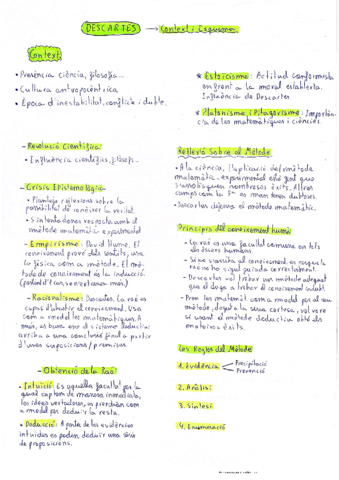 DESCARTES → Context i Esquemes
Context
• Presència ciència, filosofia...
• Cultura antropocèntrica
• Època d'inestabilitat, conflicte i dubte.
- Revolució Científica:
• Influència científics, filòsofs.
- Crisis Epistemològica:
• Planteja reflexions sobre la
possibilitat de conèixer la veritat.
• S'intenta donar resposta amb el
mètode matemàtic experimental
- Empirisme: David Hume. El
coneixement prové dels sentits, usa
la física com a mètode. El mè-
tode de coneixement és la inducció
- Racionalisme: Descartes. La raó es
capaç d'obtenir el coneixement. Usa
com a model les matemàtiques. A
més, es basa en el sistema deductiu:
arriba a una conclusió final a partir
d'unes suposicions / premisses.
- Obtenció de la Raó:
• Intuició: Es aquella facultat per la
qual captem de manera immediata,
les idees vertaderes, es prendran com
a model per deduir la resta.
• Deducció: A partir de les evidències
intuïdes es poden deduir una sèrie
de proposicions.
* Estoicisme: Actitud conformista
enfront a la moral establerta.
Influència de Descartes
* Platonisme i Pitagorisme: Importàn-
cia de les matemàtiques i ciències.
Reflexió Sobre el Mètode
• A la ciència, l'aplicació del mètode
matemàtic-experimental està fent que
s'aconsegueixin nombrosos èxits. Altres
camps com la
• Descartes defensa el mètode matemàtic.
Principis del coneixement humà
- La raó és una facultat comuna en tots
els éssers humans.
- Si no s'arriba al coneixement es perquè la
raó no ha sigut guiada correctament.
- Descartes vol trobar un mètode adequat
que el dugui a trobar el coneixement
- Pren les matemàtiques com a model per al seu
mètode, degut a la seva certesa, vol veure
si usant el mètode deductiu obté els
mateixos èxits.
Les Regles del Mètode
1. Evidència Precipitació
Prevenció
2. Anàlisi
3. Síntesi
4. Enumeració